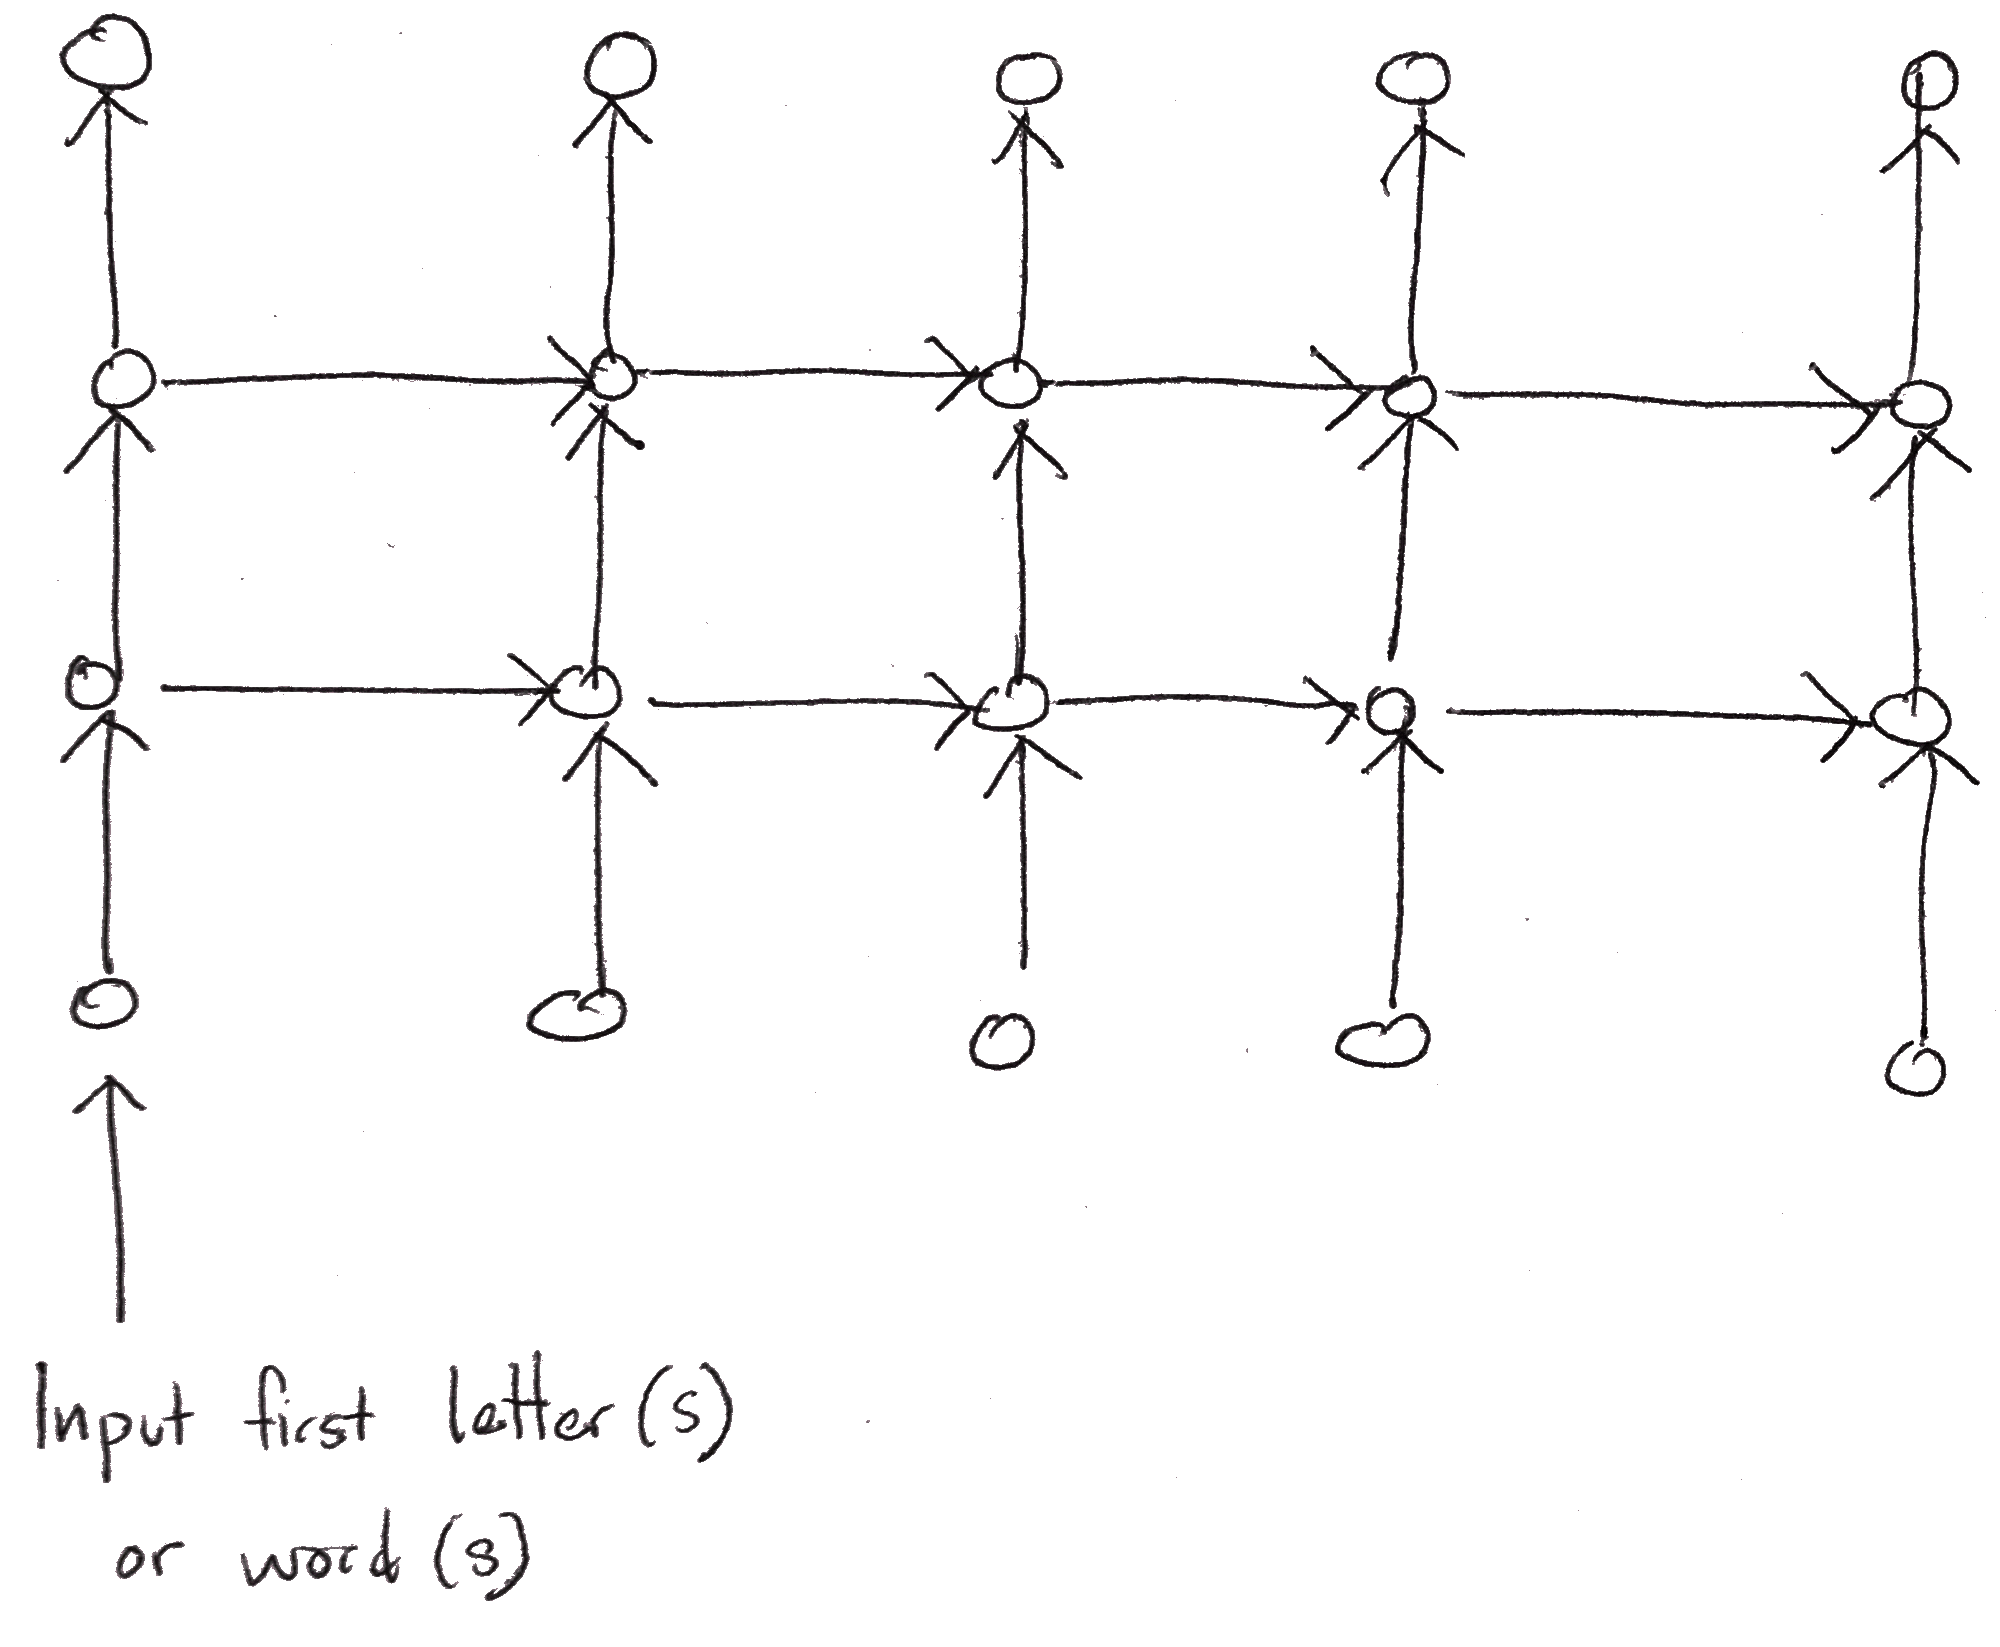 Input first letter(s)
or word(s)